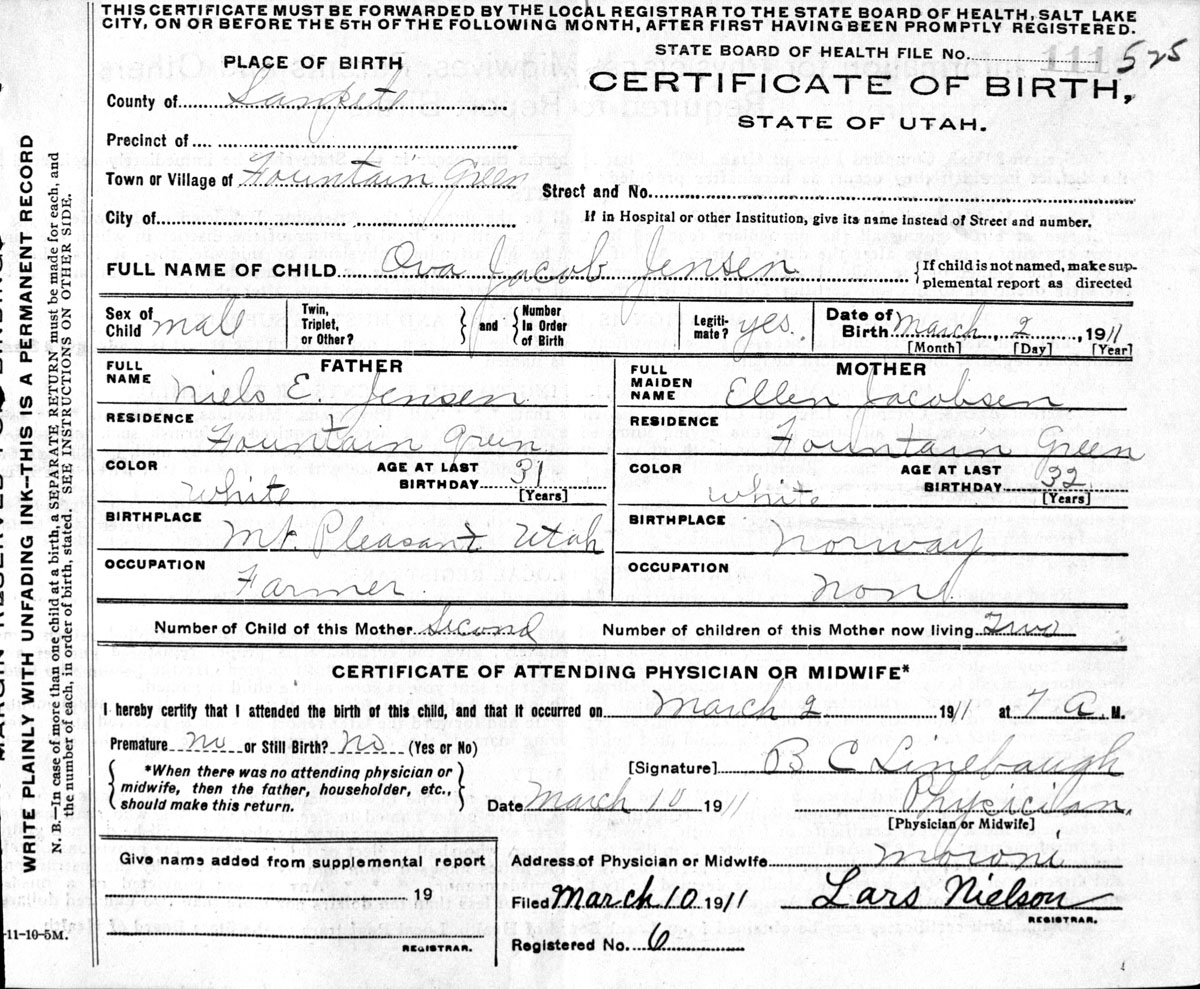 THIS CERTIFICATE MUST BE FORWARDED BY THE LOCAL REGISTRAR TO THE STATE BOARD OF HEALTH, SALT LAKE
CITY, ON OR BEFORE THE 5TH OF THE FOLLOWING MONTH, AFTER FIRST HAVING BEEN PROMPTLY REGISTERED.
STATE BOARD OF HEALTH FILE No. 111 525
PLACE OF BIRTH
CERTIFICATE OF BIRTH,
STATE OF UTAH.
County of Sanpete
Precinct of
Town or Village of Fountain Green
Street and No.
City of
If in Hospital or other Institution, give its name instead of Street and number.
FULL NAME OF CHILD Ova Jacob Jensen
{ If child is not named, make sup-
plemental report as directed
Sex of Child male
Twin, Triplet, or Other?
{ and } Number In Order of Birth
Legiti- mate? yes.
Date of Birth March 2 1911
[Month] [Day] [Year]
FATHER
FULL NAME Niels E. Jensen
RESIDENCE Fountain Green
COLOR white AGE AT LAST BIRTHDAY 31 [Years]
BIRTHPLACE Mt. Pleasant Utah
OCCUPATION Farmer
MOTHER
FULL MAIDEN NAME Ellen Jacobsen
RESIDENCE Fountain Green
COLOR white AGE AT LAST BIRTHDAY 32 [Years]
BIRTHPLACE Norway
OCCUPATION None
Number of Child of this Mother Second Number of children of this Mother now living Two
CERTIFICATE OF ATTENDING PHYSICIAN OR MIDWIFE*
I hereby certify that I attended the birth of this child, and that it occurred on March 2 1911 at 7 A. M.
Premature No or Still Birth? No. (Yes or No)
*When there was no attending physician or
midwife, then the father, householder, etc.,
should make this return.
[Signature] B C Linebaugh
Date March 10 1911 Physician.
[Physician or Midwife]
Give name added from supplemental report
19
REGISTRAR.
Address of Physician or Midwife Moroni
Filed March 10 1911 Lars Nielson
REGISTRAR.
Registered No. 6
-11-10-5M.
WRITE PLAINLY WITH UNFADING INK—THIS IS A PERMANENT RECORD
N. B.—In case of more than one child at a birth, a SEPARATE RETURN must be made for each, and
the number of each, in order of birth, stated. SEE INSTRUCTIONS ON OTHER SIDE.